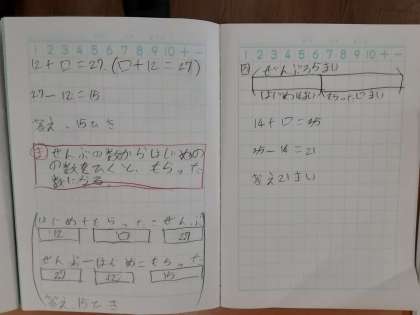 1 2 3 4 5 6 7 8 9 10 + −
12+□=27 (□+12=27)
27−12=15
答え 15ひき
ま ぜんぶの数からはじめの
の数をひくと、もらった
数になる
はじめ+もらった=ぜんぶ
12 □ 27
ぜんぶ−はじめ=もらった
27 12 15
答え 15ひき
1 2 3 4 5 6 7 8 9 10 + −
ぜんぶ35まい
はじめ14まい もらった□まい
14+□=35
35−14=21
答え21まい